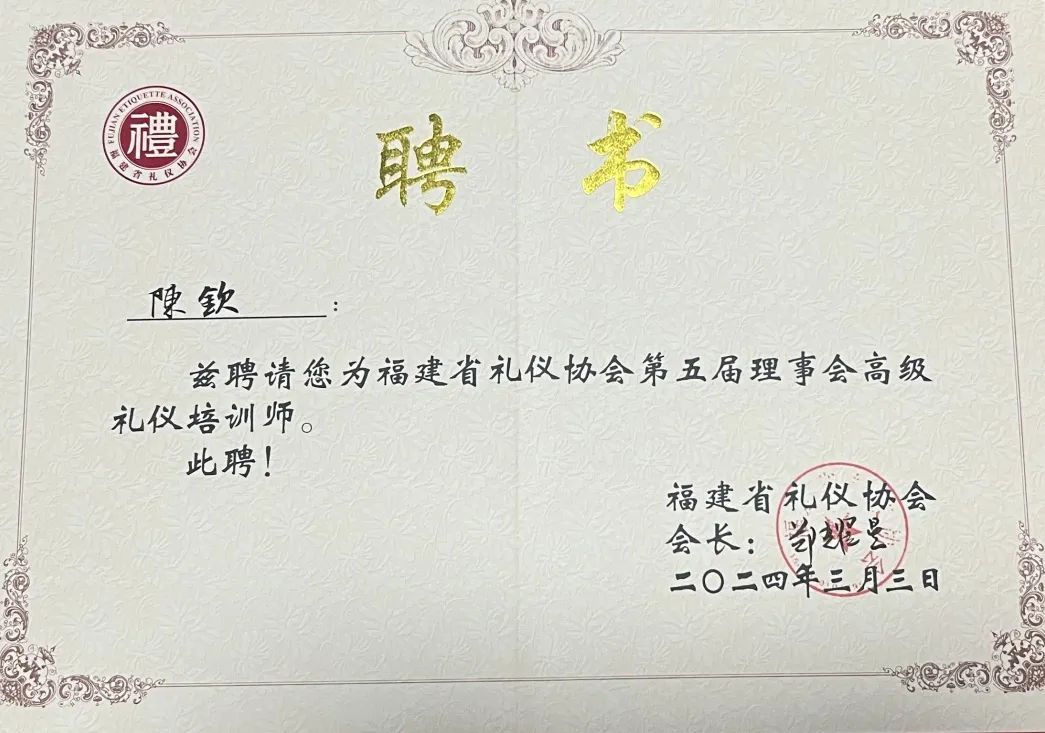 FUJIAN ETIQUETTE ASSOCIATION
禮
福建省礼仪协会
聘书
陳钦:
兹聘请您为福建省礼仪协会第五届理事会高级
礼仪培训师。
此聘!
福建省礼仪协会
会长:
二〇二四年三月三日